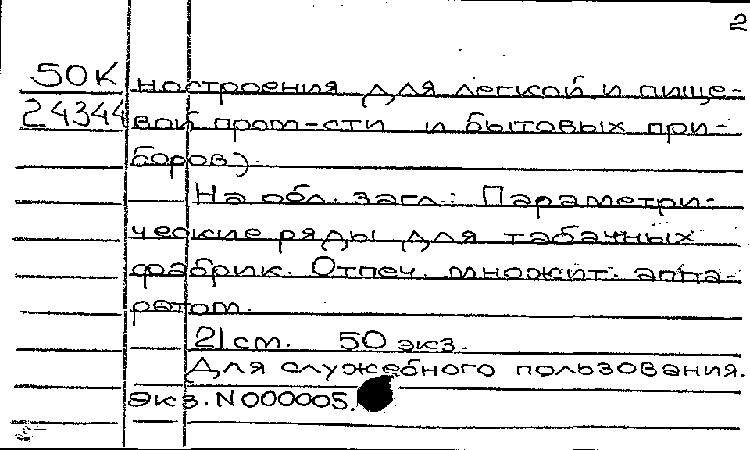 2
50К ностроения для легкой и пище-
24344 вой пром-сти и бытовых при-
боров).
На обл. загл.: Параметри-
ческие ряды для табачных
фабрик. Отпеч. множит. аппа-
ратом.
21 см. 50 экз.
Для служебного пользования.
экз. N 000005.